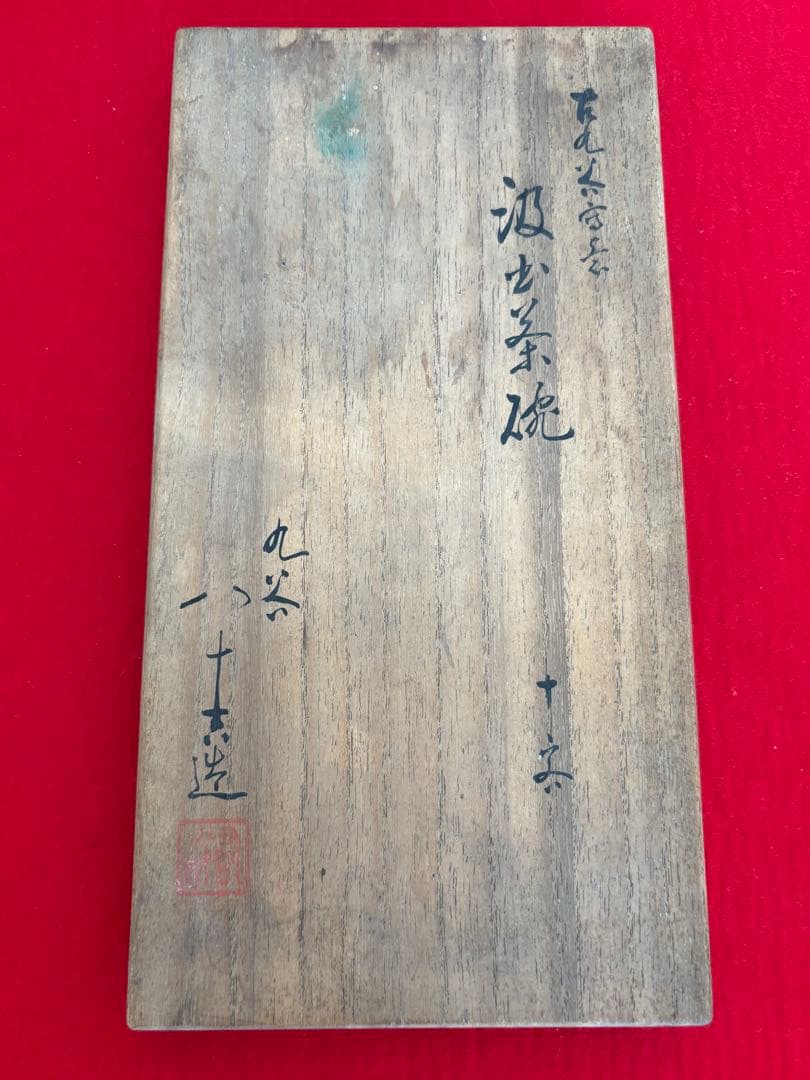 古九谷写意
汲出茶碗
十客
九谷
八十吉造